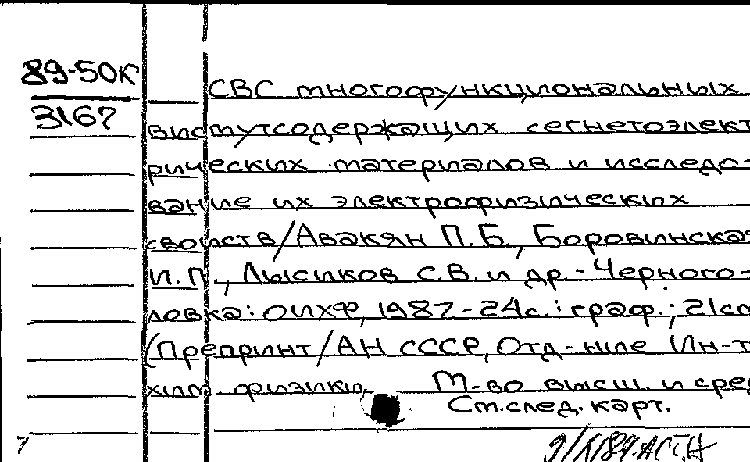 89-50К
3167
СВС многофункциональных
висмутсодержащих сегнетоэлект
рических материалов и исследо-
вание их электрофизических
свойств/Авакян П.Б., Боровинская
И.П., Лысиков С.В. и др.-Черного-
ловка: ОИХФ, 1987-24с.: граф.; 21см
(Препринт/АН СССР, Отд-ние Ин-т
хим. физики, М-во высш. и сред
См.след.карт.